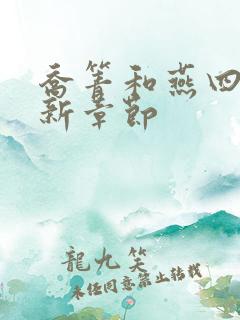 喬箐和燕四
新章節
龍九笑
未经同意禁止转载